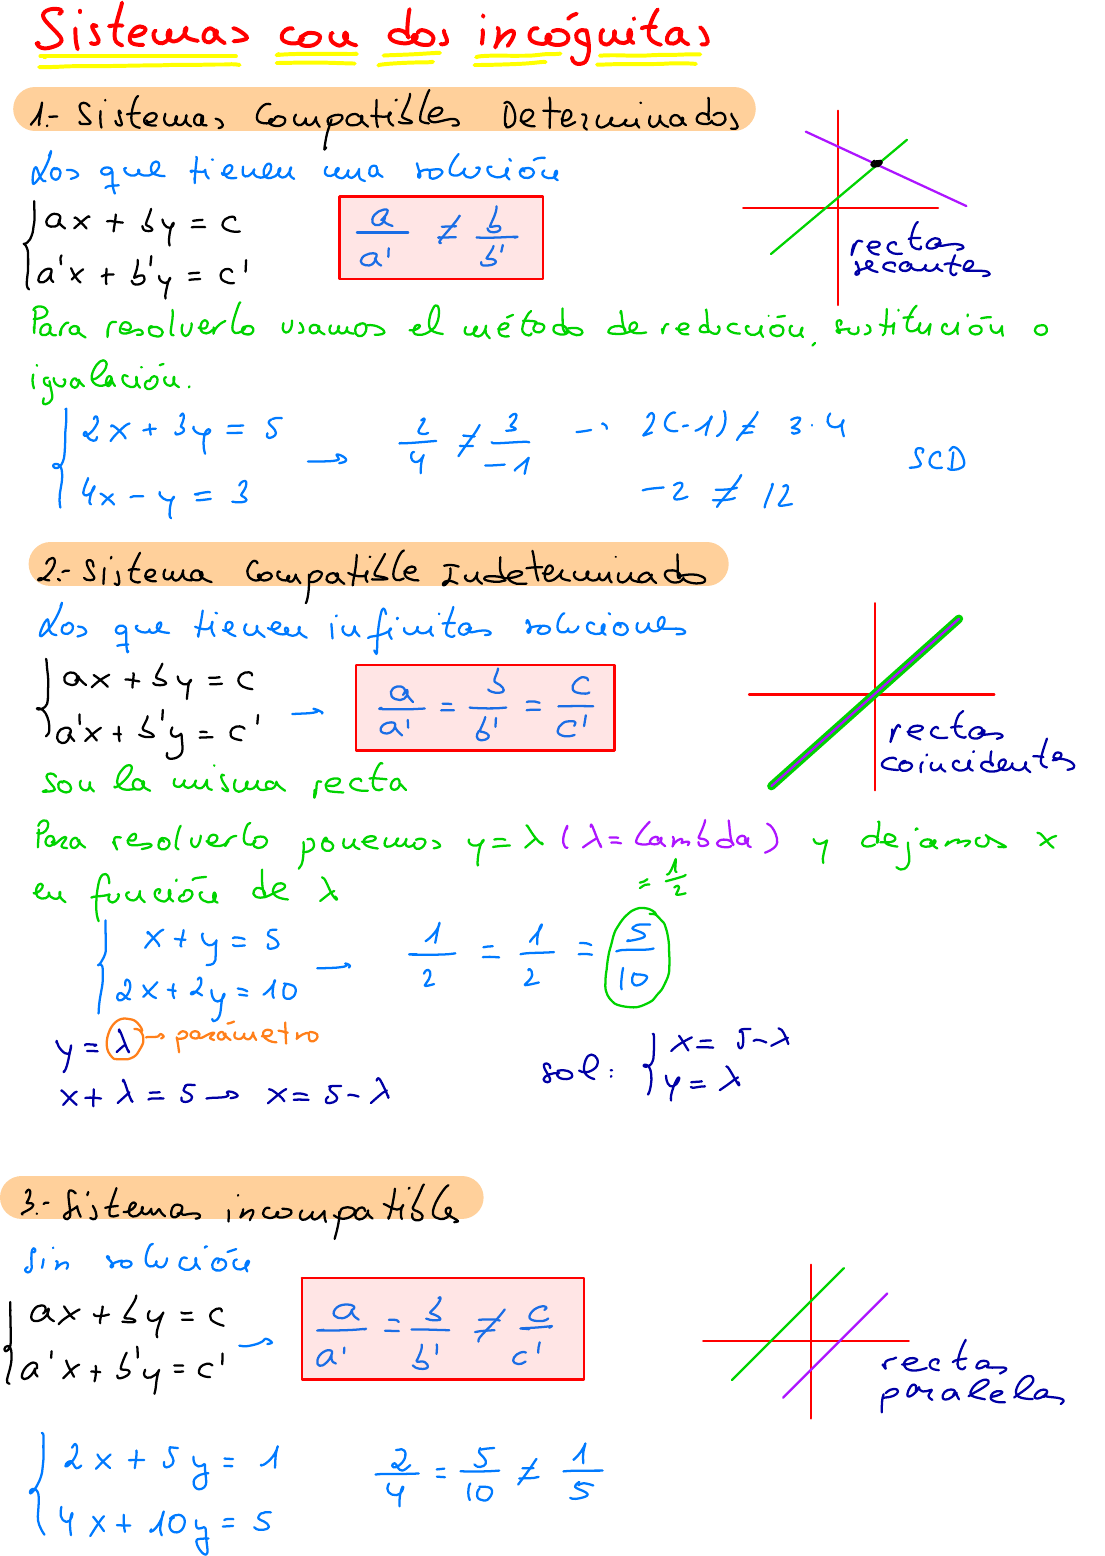 Sistemas con dos incógnitas
1.- Sistemas Compatibles Determinados
Los que tienen una solución
{ ax + by = c
a'x + b'y = c'
a/a' ≠ b/b'
rectas
secantes
Para resolverlo usamos el método de reducción, sustitución o
igualación.
{ 2x + 3y = 5 → 2/4 ≠ 3/-1 → 2(-1) ≠ 3·4
4x - y = 3 -2 ≠ 12 SCD
2.- Sistema Compatible Indeterminado
Los que tienen infinitas soluciones
{ ax + by = c
a'x + b'y = c' → a/a' = b/b' = c/c'
rectas
coincidentes
Son la misma recta
Para resolverlo ponemos y = λ (λ = lambda) y dejamos x
en función de λ
= 1/2
{ x + y = 5
2x + 2y = 10 → 1/2 = 1/2 = 5/10
y = λ → parámetro
x + λ = 5 → x = 5 - λ
sol: { x = 5 - λ
y = λ
3.- Sistemas incompatibles
Sin solución
{ ax + by = c
a'x + b'y = c' → a/a' = b/b' ≠ c/c'
rectas
paralelas
{ 2x + 5y = 1
4x + 10y = 5
2/4 = 5/10 ≠ 1/5